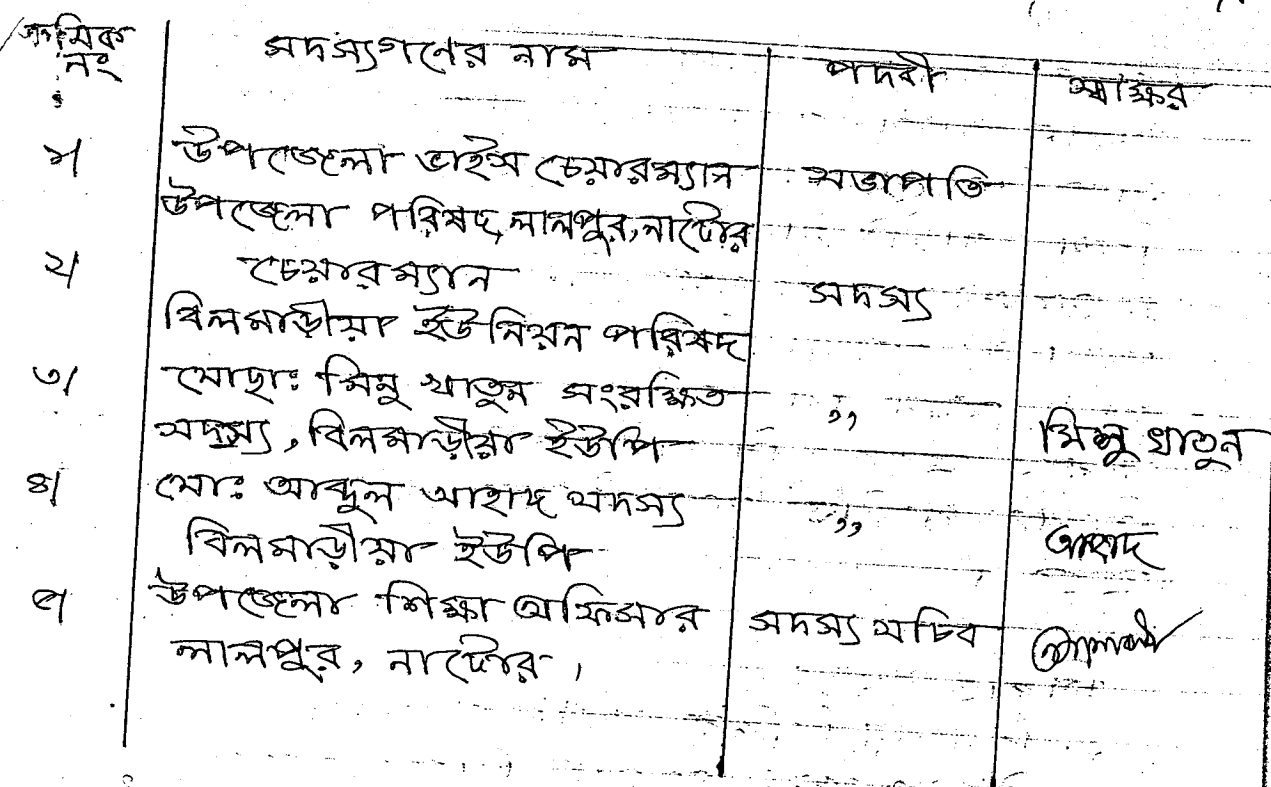 ক্রমিক
নং
সদস্যগণের নাম
পদবী
স্বাক্ষর
১।
উপজেলা ভাইস চেয়ারম্যান
সভাপতি
উপজেলা পরিষদ, লালপুর, নাটোর
২।
চেয়ারম্যান
সদস্য
বিলমাড়ীয়া ইউনিয়ন পরিষদ
৩।
মোছাঃ মিনু খাতুন সংরক্ষিত
,,
সদস্য, বিলমাড়ীয়া ইউপি
মিনু খাতুন
৪।
মোঃ আব্দুল আহাদ সদস্য
,,
বিলমাড়ীয়া ইউপি
আহাদ
৫।
উপজেলা শিক্ষা অফিসার
সদস্য সচিব
লালপুর, নাটোর,